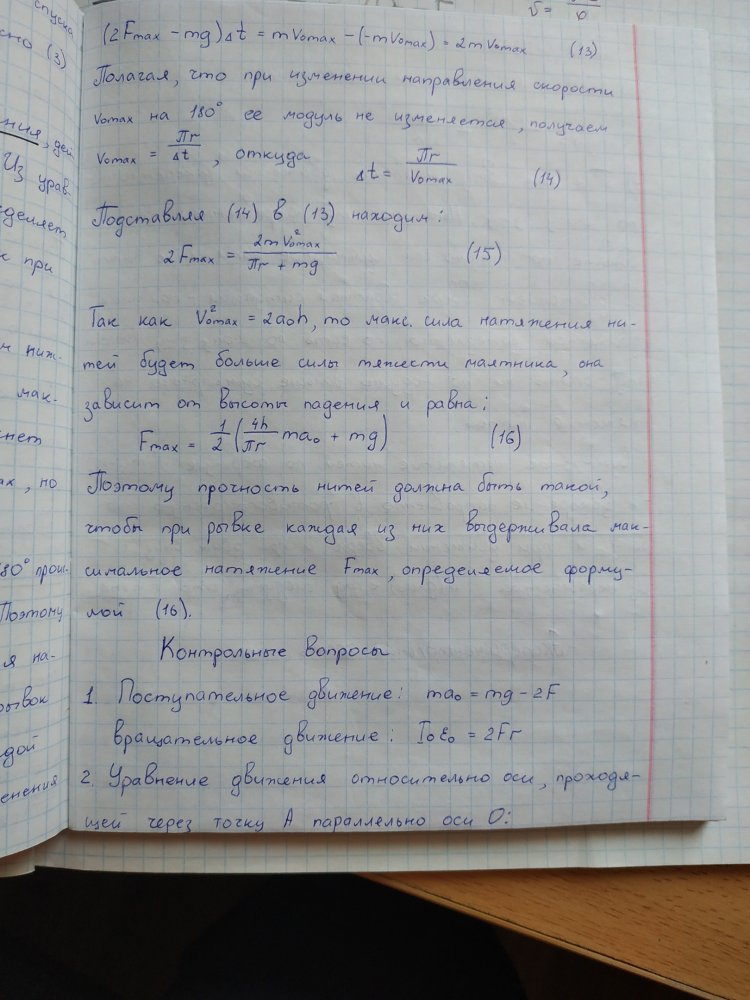 (2Fmax - mg)Δt = mVomax - (-mVomax) = 2mVomax (13)
Полагая, что при изменении направления скорости
Vomax на 180° ее модуль не изменяется, получаем
Vomax = Πr/Δt, откуда Δt = Πr/Vomax (14)
Подставляя (14) в (13) находим:
2Fmax = 2mV²omax/Πr + mg (15)
Так как V²omax = 2a₀h, то макс. сила натяжения ни-
тей будет больше силы тяжести маятника, она
зависит от высоты падения и равна:
Fmax = 1/2 (4h/Πr ma₀ + mg) (16)
Поэтому прочность нитей должна быть такой,
чтобы при рывке каждая из них выдерживала мак-
симальное натяжение Fmax, определяемое форму-
лой (16).
Контрольные вопросы
1. Поступательное движение: ma₀ = mg - 2F
вращательное движение: I₀ε₀ = 2Fr
2. Уравнение движения относительно оси, проходя-
щей через точку А параллельно оси О: